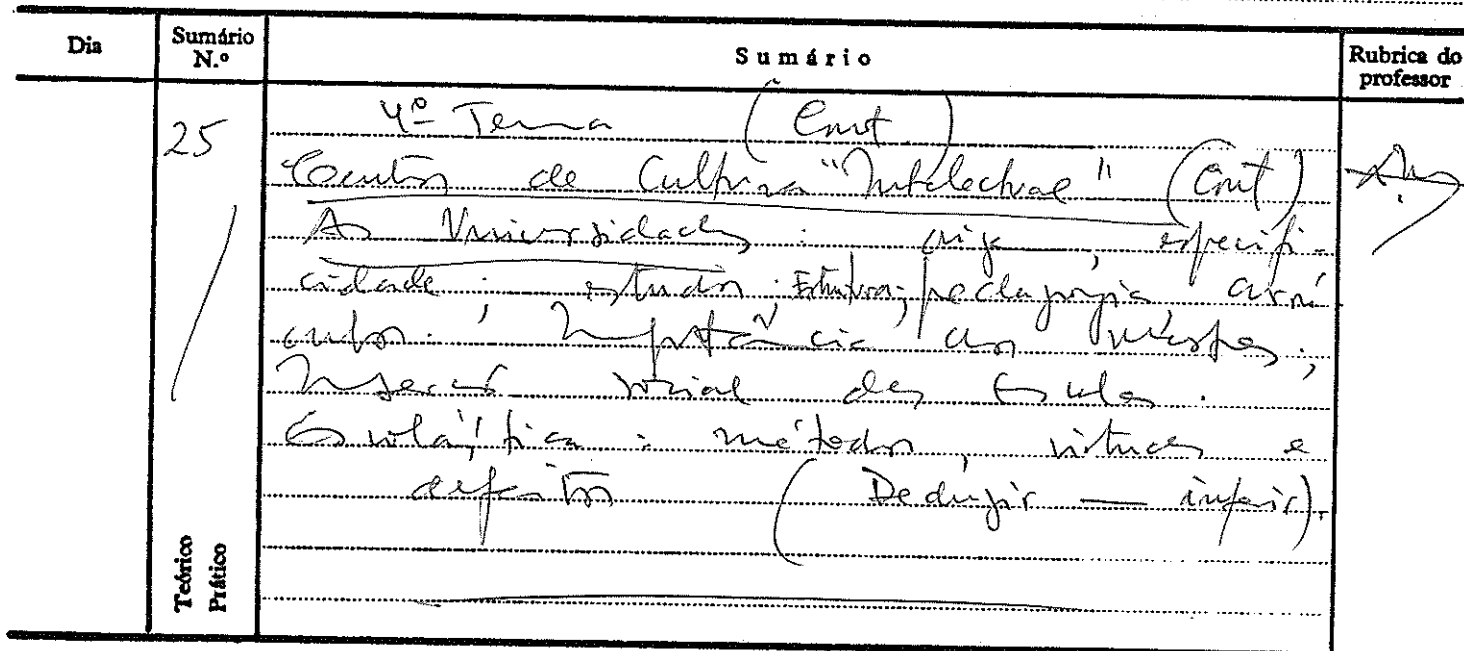 Dia
Sumário N.º
Sumário
Rubrica do professor
25
4º Tema (Cont)
Centros de Cultura "Intelectual" (Cont)
As Universidades: orig, especifi-
cidade; estudos; Estrutura; pedagogia
Importância dos Mestres;
Inserção social das Escolas.
Escolástica: métodos, virtudes e
defeitos (Deduzir — inferir).
Teórico
Prático